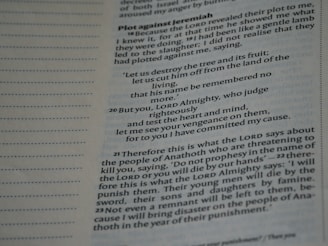 decision
of both Israel and
aroused my anger by burning
Plot against Jeremiah
18 Because the LORD revealed their plot to me,
I knew it, for at that time he showed me what
they were doing. 19 I had been like a gentle lamb
led to the slaughter; I did not realise that they
had plotted against me, saying,
'Let us destroy the tree and its fruit;
let us cut him off from the land of the
living,
that his name be remembered no
more.'
20 But you, LORD Almighty, who judge
righteously
and test the heart and mind,
let me see your vengeance on them,
for to you I have committed my cause.
21 Therefore this is what the LORD says about
the people of Anathoth who are threatening to
kill you, saying, 'Do not prophesy in the name of
the LORD or you will die by our hands' – 22 there-
fore this is what the LORD Almighty says: 'I will
punish them. Their young men will die by the
sword, their sons and daughters by famine.
23 Not even a remnant will be left to them, be-
cause I will bring disaster on the people of Ana-
thoth in the year of their punishment.'
your punishment? / Then you